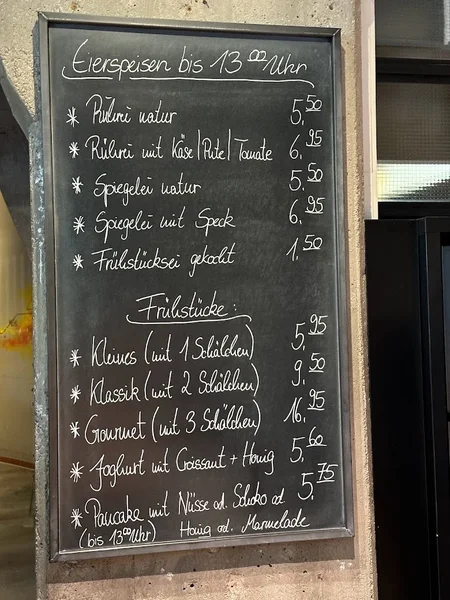 Eierspeisen bis 13⁰⁰ Uhr
* Rührei natur 5,50
* Rührei mit Käse/Pute/Tomate 6,95
* Spiegelei natur 5,50
* Spiegelei mit Speck 6,95
* Frühstücksei gekocht 1,50
Frühstücke:
* Kleines (mit 1 Schälchen) 5,95
* Klassik (mit 2 Schälchen) 9,50
* Gourmet (mit 3 Schälchen) 16,95
* Joghurt mit Croissant + Honig 5,60
* Pancake mit Nüsse od. Schoko od 5,75
(bis 13⁰⁰ Uhr) Honig od. Marmelade